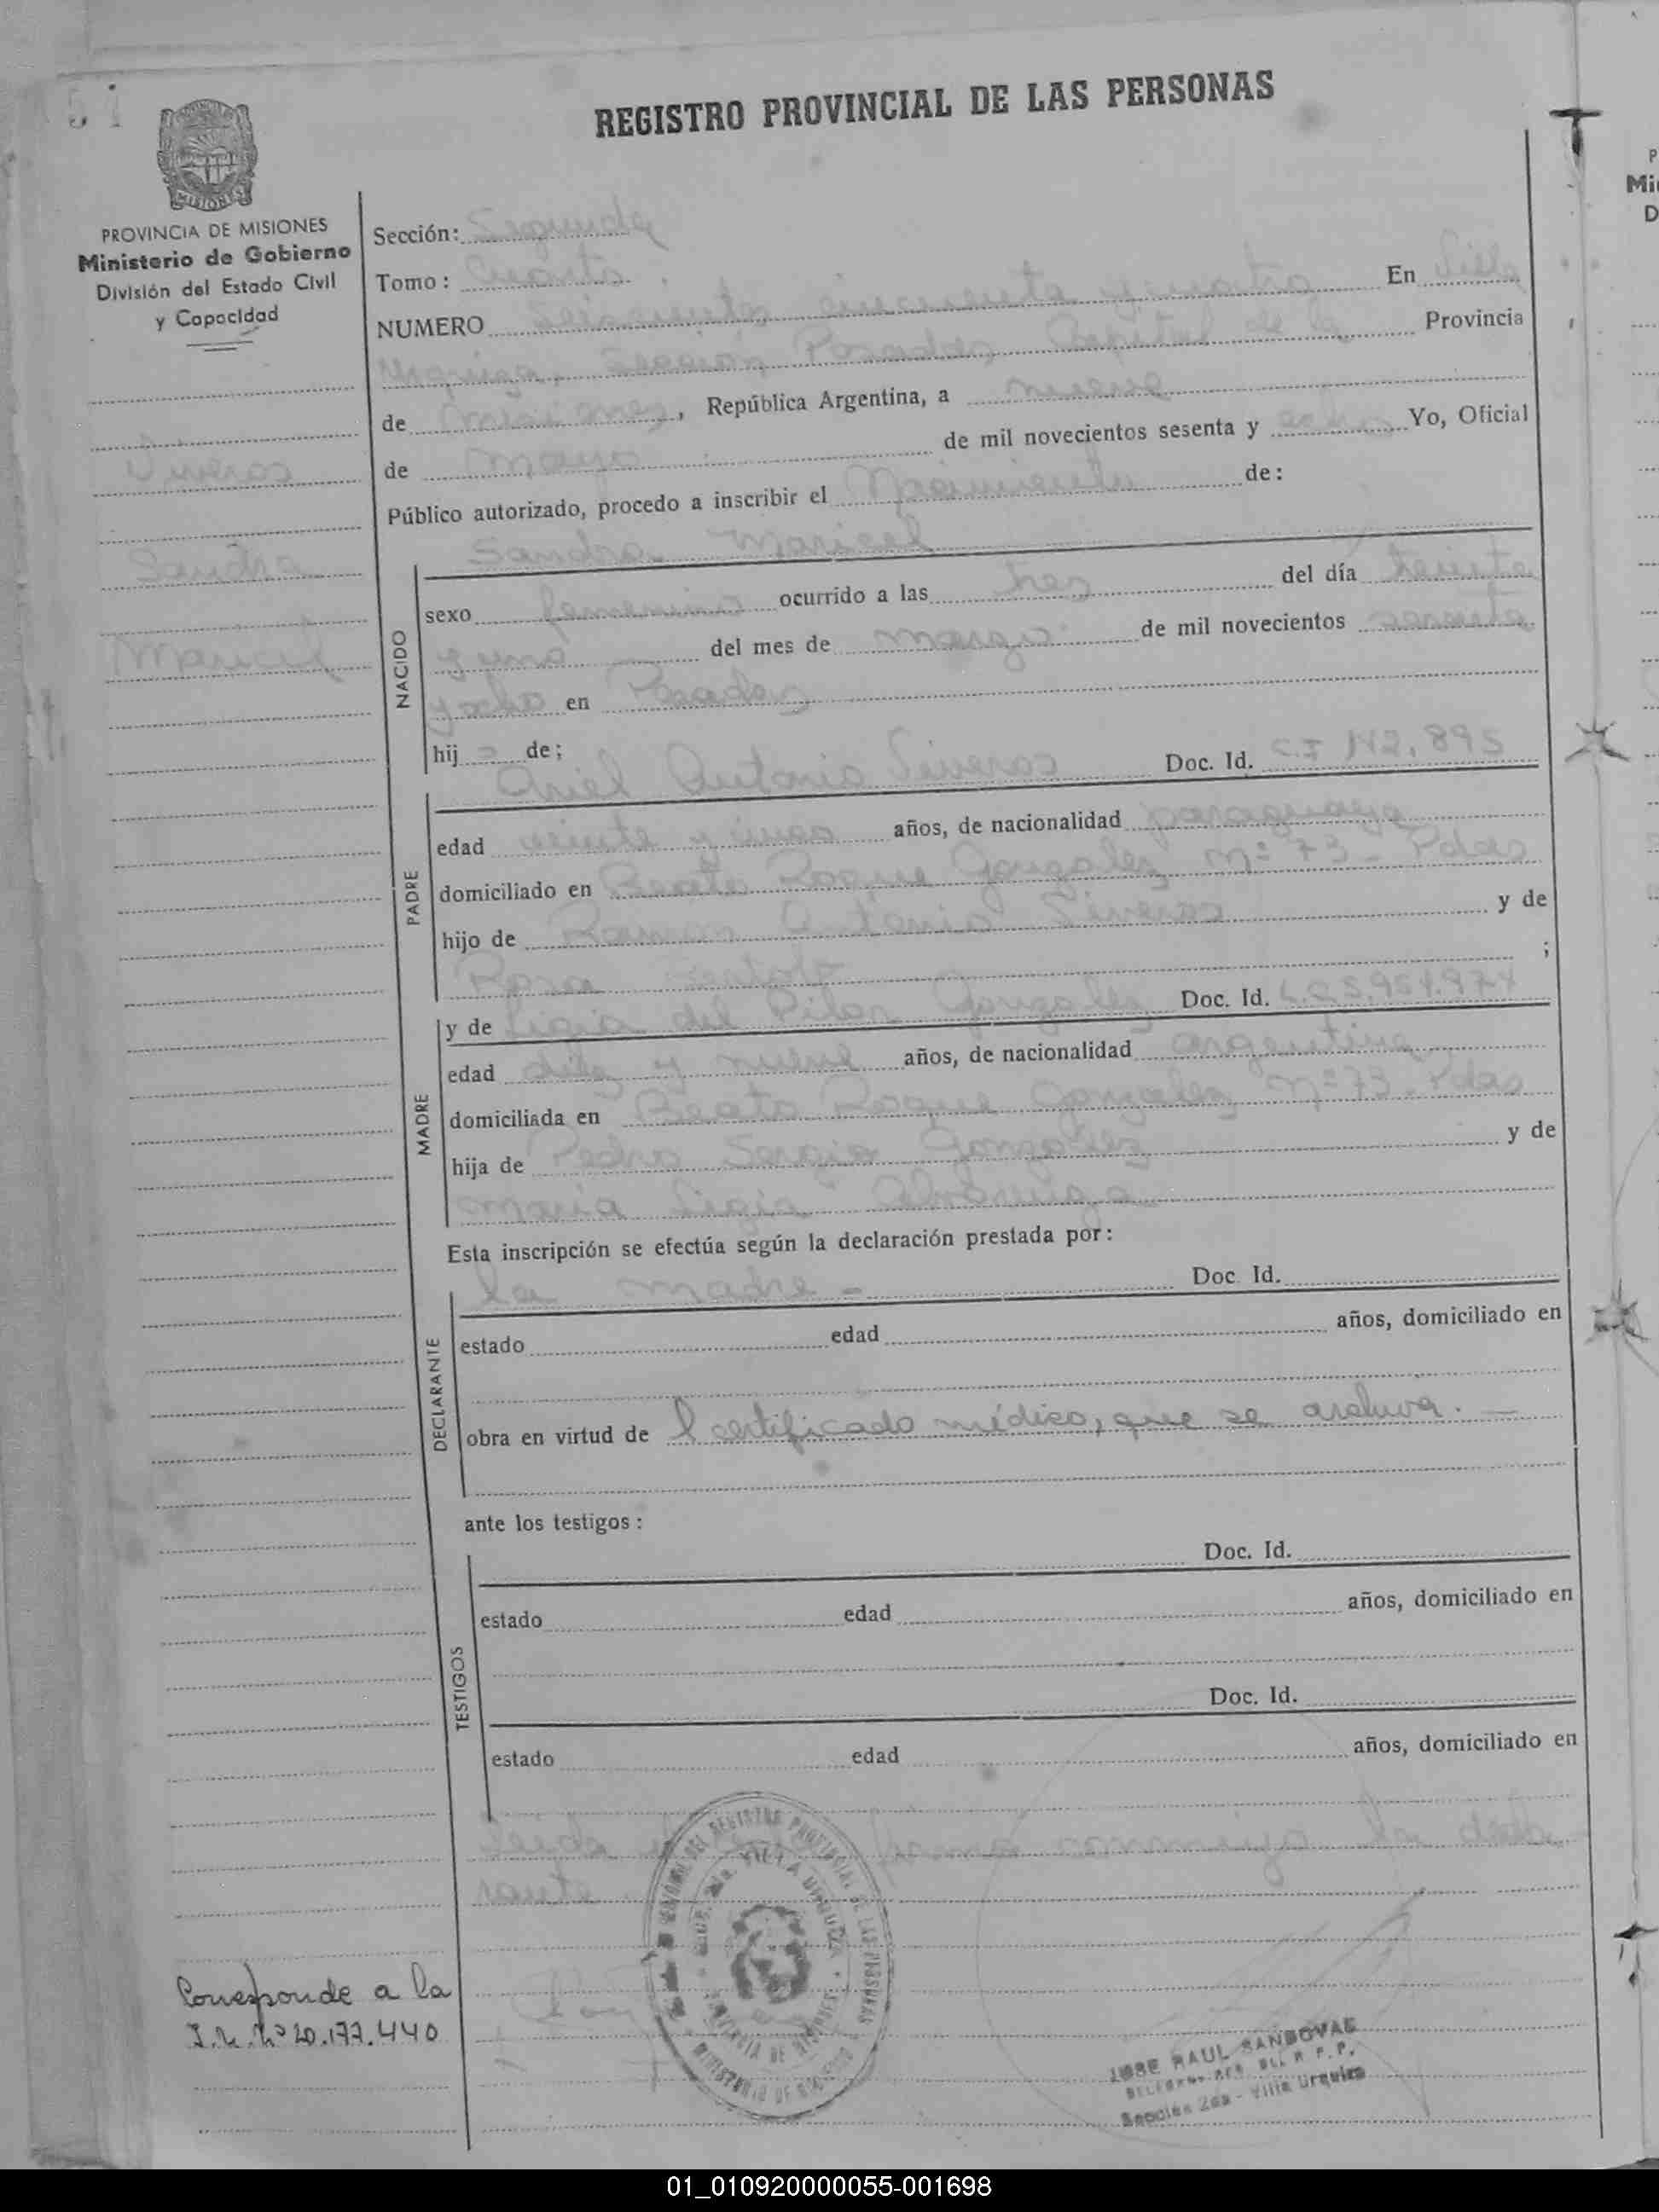 51
REGISTRO PROVINCIAL DE LAS PERSONAS
MISIONES
PROVINCIA DE MISIONES
Ministerio de Gobierno
División del Estado Civil
y Capacidad
Sección: Segunda
Tomo: Cuarto
NUMERO Seiscientos cincuenta y cuatro En Villa
Urquiza, Sección Posadas Capital de la Provincia
de Misiones, República Argentina, a nueve
de mayo de mil novecientos sesenta y ocho Yo, Oficial
Público autorizado, procedo a inscribir el Nacimiento de:
Sandra Maricel
Sandra
Maricel
NACIDO
sexo femenino ocurrido a las tres del día treinta
y uno del mes de marzo de mil novecientos sesenta
y ocho en Posadas
hij de;
Ariel Antonio Doc. Id. C.I 142.895
PADRE
edad veinte y cinco años, de nacionalidad paraguaya
domiciliado en Beato Roque Gonzalez Nº 73 - Pdas
hijo de Ramon Antonio y de
Rosa ;
y de Ligia del Pilar Gonzalez Doc. Id. L.C 5.954.974
MADRE
edad diez y nueve años, de nacionalidad argentina
domiciliada en Beato Roque Gonzalez Nº 73 - Pdas
hija de Pedro Sergio Gonzalez y de
Maria Ligia
Esta inscripción se efectúa según la declaración prestada por:
la madre - Doc Id.
DECLARANTE
estado edad años, domiciliado en
obra en virtud de l certificado médico, que se archiva. -
ante los testigos:
Doc. Id.
TESTIGOS
estado edad años, domiciliado en
Doc. Id.
estado edad años, domiciliado en
Leida firma conmigo la decla-
rante.
Corresponde a la
I. Nº 20.177.440
JOSE RAUL SANDOVAL
Sección 2da - Villa Urquiza
01_010920000055-001698